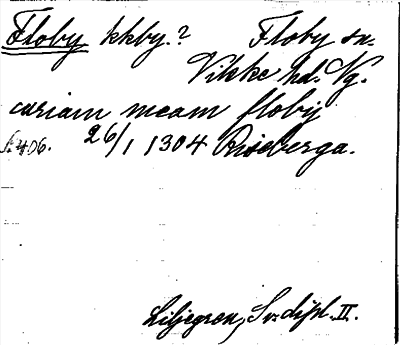 Floby kkby.? Floby sn.
Vilske hd. Vg.
curiam meam floby
s. 406. 26/1 1304 Riseberga.
Liljegren, Sv. dipl. II.